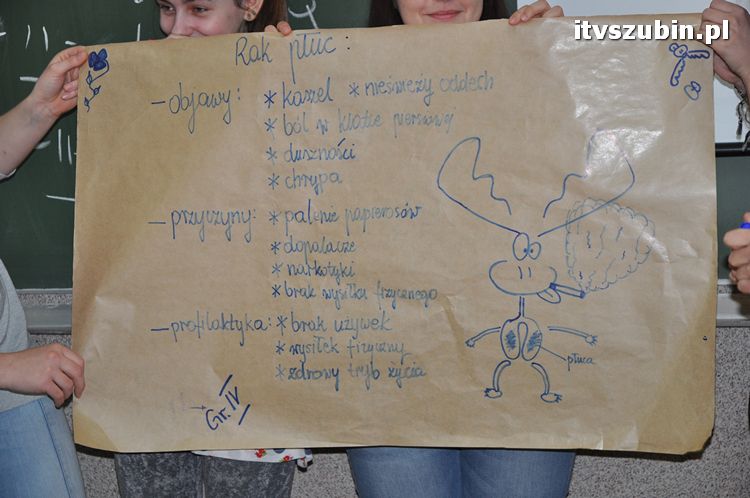 itvszubin.pl
Rak płuc:
- objawy: * kaszel * nieświeży oddech
* ból w klatce piersiową
* duszności
* chrypa
- przyczyny: * palenie papierosów
* dopalacze
* narkotyki
* brak wysiłku fizycznego
- profilaktyka: * brak używek
* wysiłek fizyczny
* zdrowy tryb życia
płuca
Gr. IV